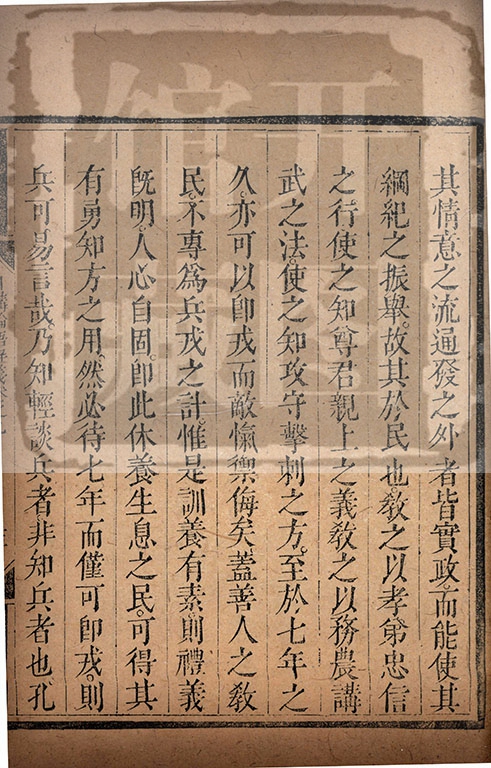 其情意之流通發之外者皆實政而能使其
綱紀之振舉故其於民也敎之以孝弟忠信
之行使之知尊君親上之義敎之以務農講
武之法使之知攻守擊刺之方至於七年之
久亦可以卽戎而敵愾禦侮矣蓋善人之敎
民不專爲兵戎之計惟是訓養有素則禮義
旣明人心自固卽此休養生息之民可得其
有勇知方之用然必待七年而僅可卽戎則
兵可易言哉乃知輕談兵者非知兵者也孔